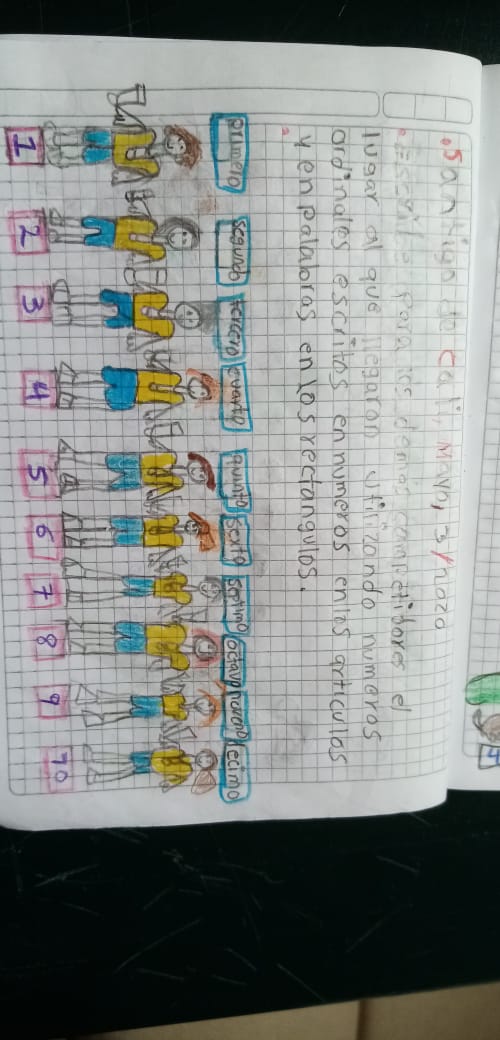 .Santigo de cali, Mayo, 3/2020
. Escribe para los demas competidores el
lugar al que llegaron utilizando numeros
ordinales escritos en numeros en los articulos
y en palabras en los rectangulos.
primero segundo tercero cuarto quinto sexto septimo octavo noveno decimo
1 2 3 4 5 6 7 8 9 10